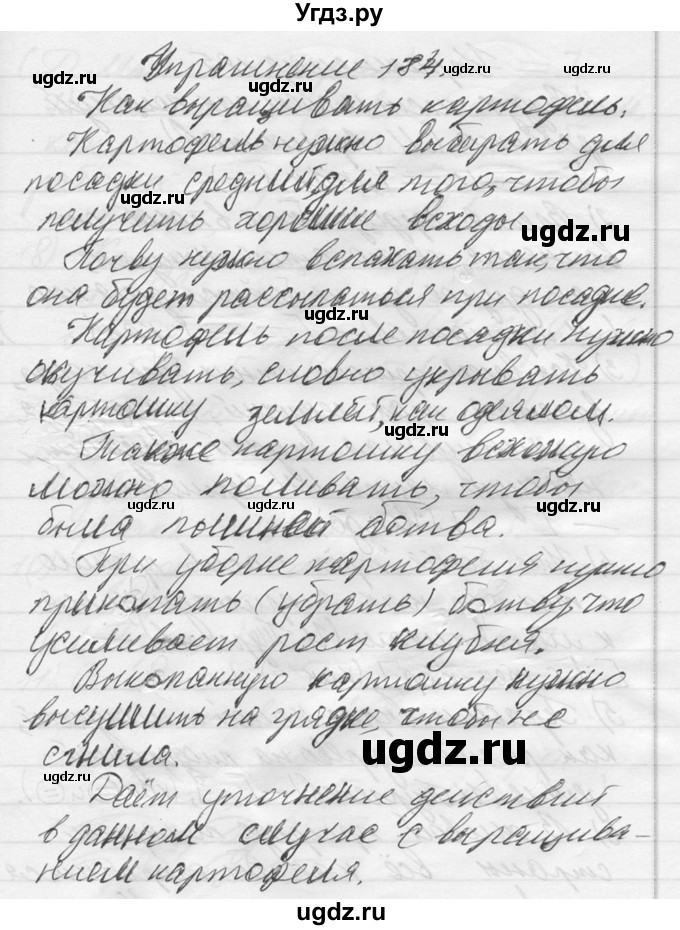 Угдз.ру
Упражнение 184.
Как выращивать картофель.
Картофель нужно выбирать для
посадки средний, для того, чтобы
получить хорошие всходы.
Почву нужно вспахать так, что
она будет рассыпаться при посадке.
Картофель после посадки нужно
окучивать, словно укрывать
картошку землёй, как одеялом.
Также картошку всхожую
можно поливать, чтобы
была пышной ботва.
При уборке картофеля нужно
прикопать (убрать) ботву, что
усиливает рост клубня.
Выкопанную картошку нужно
высушить на грядке, чтобы не
сгнила.
Даёт уточнение действий
в данном случае с выращива-
нием картофеля.
ugdz.ru